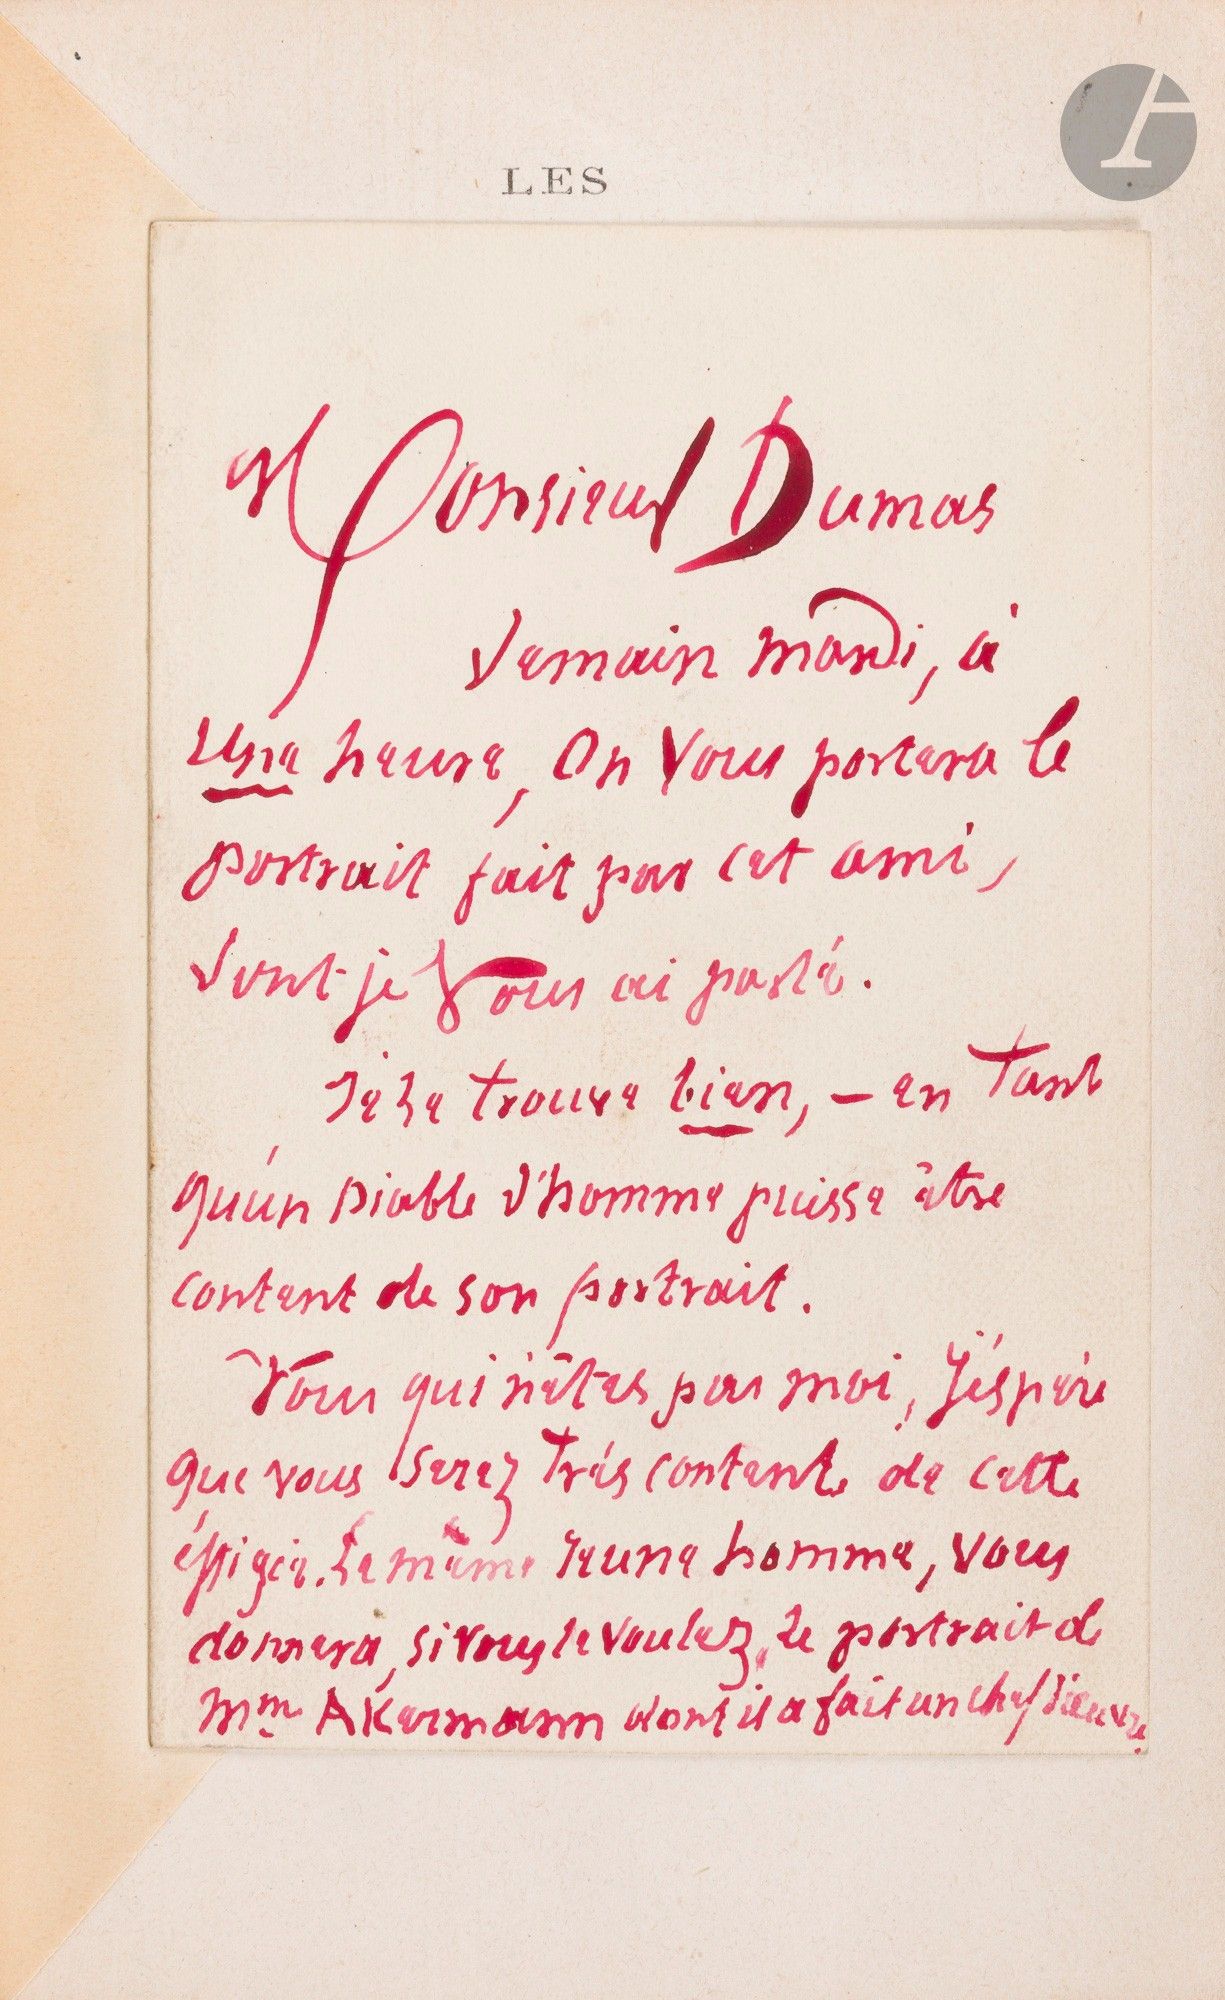 LES
Monsieur Dumas
demain mardi, à
une heure, On Vous portera le
portrait fait par cet ami,
dont je Vous ai parlé.
Je le trouve bien, – en Tant
qu'un Diable d'homme puisse être
content de son portrait.
Vous qui n'êtes pas moi, J'éspère
que vous serez Très content de cette
éffigie. Le même Jeune homme, vous
donnera, si vous le voulez, Le portrait de
Mme AKermann dont il a fait un chef d'œuvre.